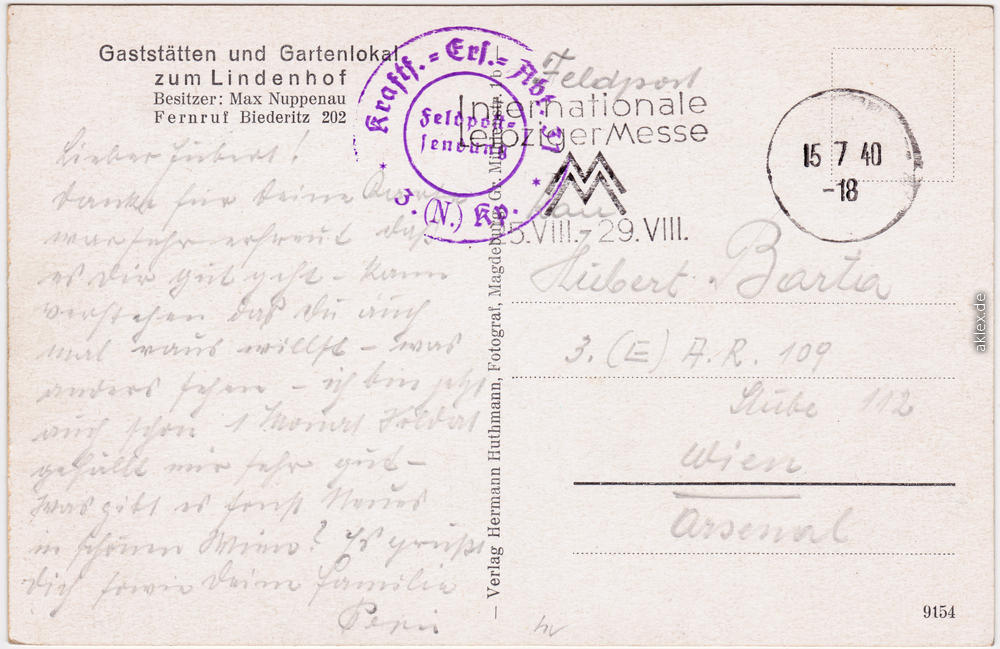 Gaststätten und Gartenlokal
zum Lindenhof
Besitzer: Max Nuppenau
Fernruf Biederitz 202
Kraftf.=Ers.=Abt. 31
Feldpost-
sendung
3. (N.) Kp.
Feldpost
Internationale
Leipziger Messe
25.VIII.-29.VIII.
15 7 40
-18
Lieber Hubert!
Danke für Deine Karte
war sehr erfreut daß
es Dir gut geht - kann
verstehen daß Du auch
mal raus willst - was
anders sehen - ich bin jetzt
auch schon 1 Monat Soldat
gefällt mir sehr gut -
Was gibt es sonst Neues
im schönen Wien? Es grüßt
Dich sowie Deine Familie
Hubert Barta
3. (E) A.R. 109
Stube 112
Wien
Arsenal
– Verlag Hermann Huthmann, Fotograf, Magdeburg, Gr. Münzstr. 1b –
9154
aklex.de